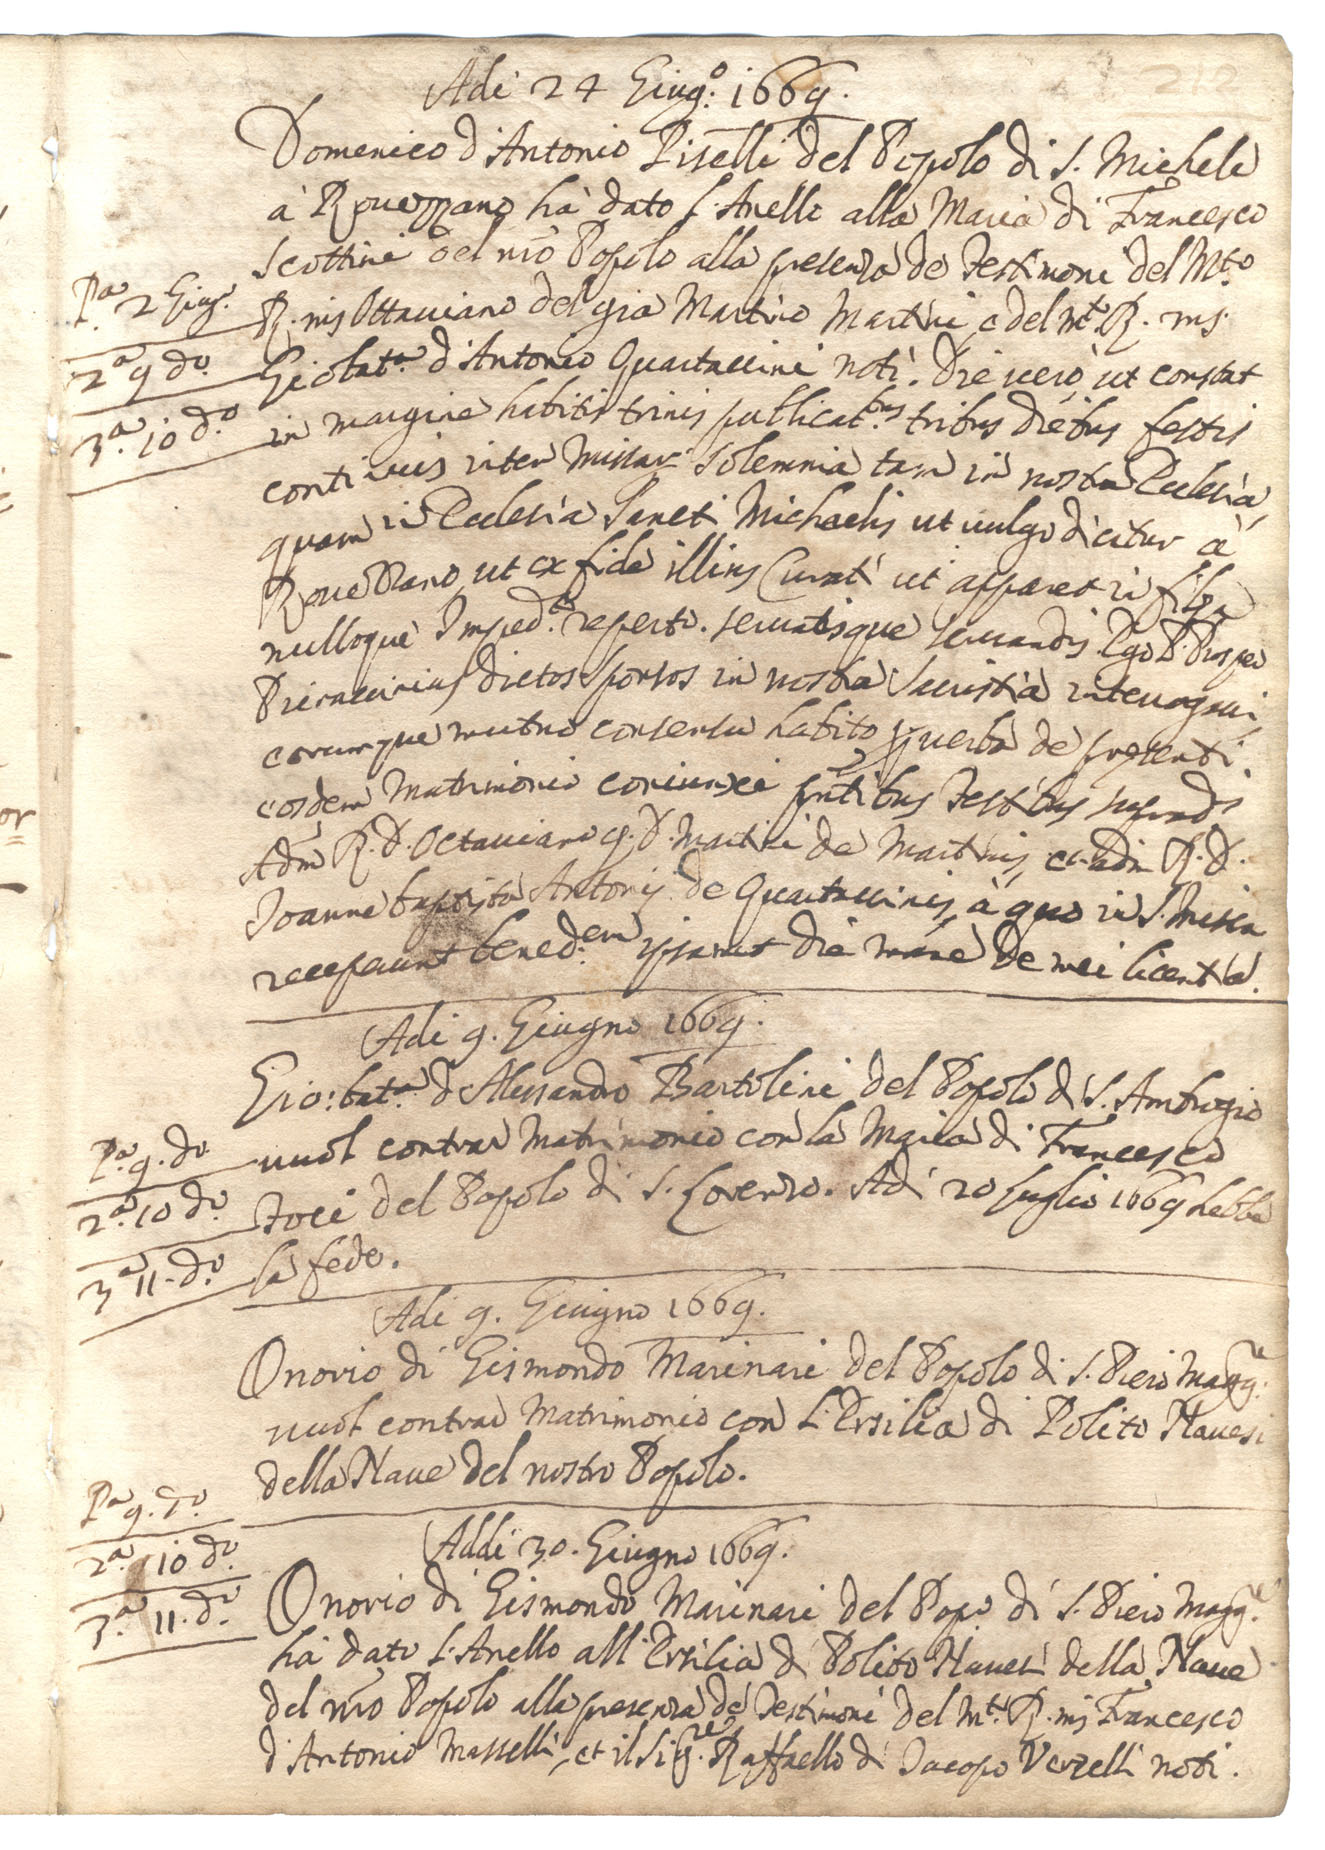 Adi 24 Giug.o 1669.
Domenico d'Antonio Piselli del Popolo di S. Michele
à Rovezzano hà dato l'Anello alla Maria di Francesco
Scottini del nro Popolo alla presenza de Testimoni del M.to
P.a 2 Giug.
R. ms Ottaviano del già Martino Martini, e del m.to R. ms.
2.a 9 d.o
Gio bat.a d'Antonio Quartaccini noti. Die vero, ut constat
3.a 10 d.o
in margine habitis trinis publicat.bus tribus diebus festis
continuis inter Missar. Solemnia tam in nostra Ecclesia,
quam in Ecclesia Sancti Michaelis ut vulgo dicitur à
Rovezzano, ut ex fide illius Curati ut apparet in filza
nulloque Imped.to reperto. servatisque servandis. Ego P. Prosper
Pieraccinius dictos sponsos in nostra Sacristia interrogavi,
eorumque mutuo consensu habito p verba de presenti
eosdem Matrimonio coniunxi pntibus Testibus
Adm R. D. Octaviano q. D. Martini de Martinis, et adm R. D.
Joanne baptista Antonij de Quartaccinis, à quo in S. Missa
receperunt bened.em ipsamet die mane de mei licentia.
Adi 9. Giugno 1669.
Gio: bat.a d'Alessandro Bartolini del Popolo di S. Ambrogio
P.a 9. d.o
vuol contrar Matrimonio con la Maria di Francesco
2.a 10 d.o
Toci del Popolo di S. Lorenzo. Adi 20 luglio 1669 hebbe
3.a 11. d.o
la fede.
Adi 9. Giugno 1669.
Onorio di Gismondo Marinari del Popolo di S. Piero Magg.re
vuol contrar Matrimonio con l'Ersilia di Polito Navesi
della Nave del nostro Popolo.
P.a 9. d.o
Addi 30. Giugno 1669.
2.a 10 d.o
Onorio di Gismondo Marinari del Popo di S. Piero Magg.re
3.a 11. d.o
hà dato l'Anello all'Ersilia di Polito Navesi della Nave
del nro Popolo alla presenza de Testimoni del M.to R. ms Francesco
d'Antonio Masselli, et il Sig.re Raffaello di Jacopo Verzelli noti.